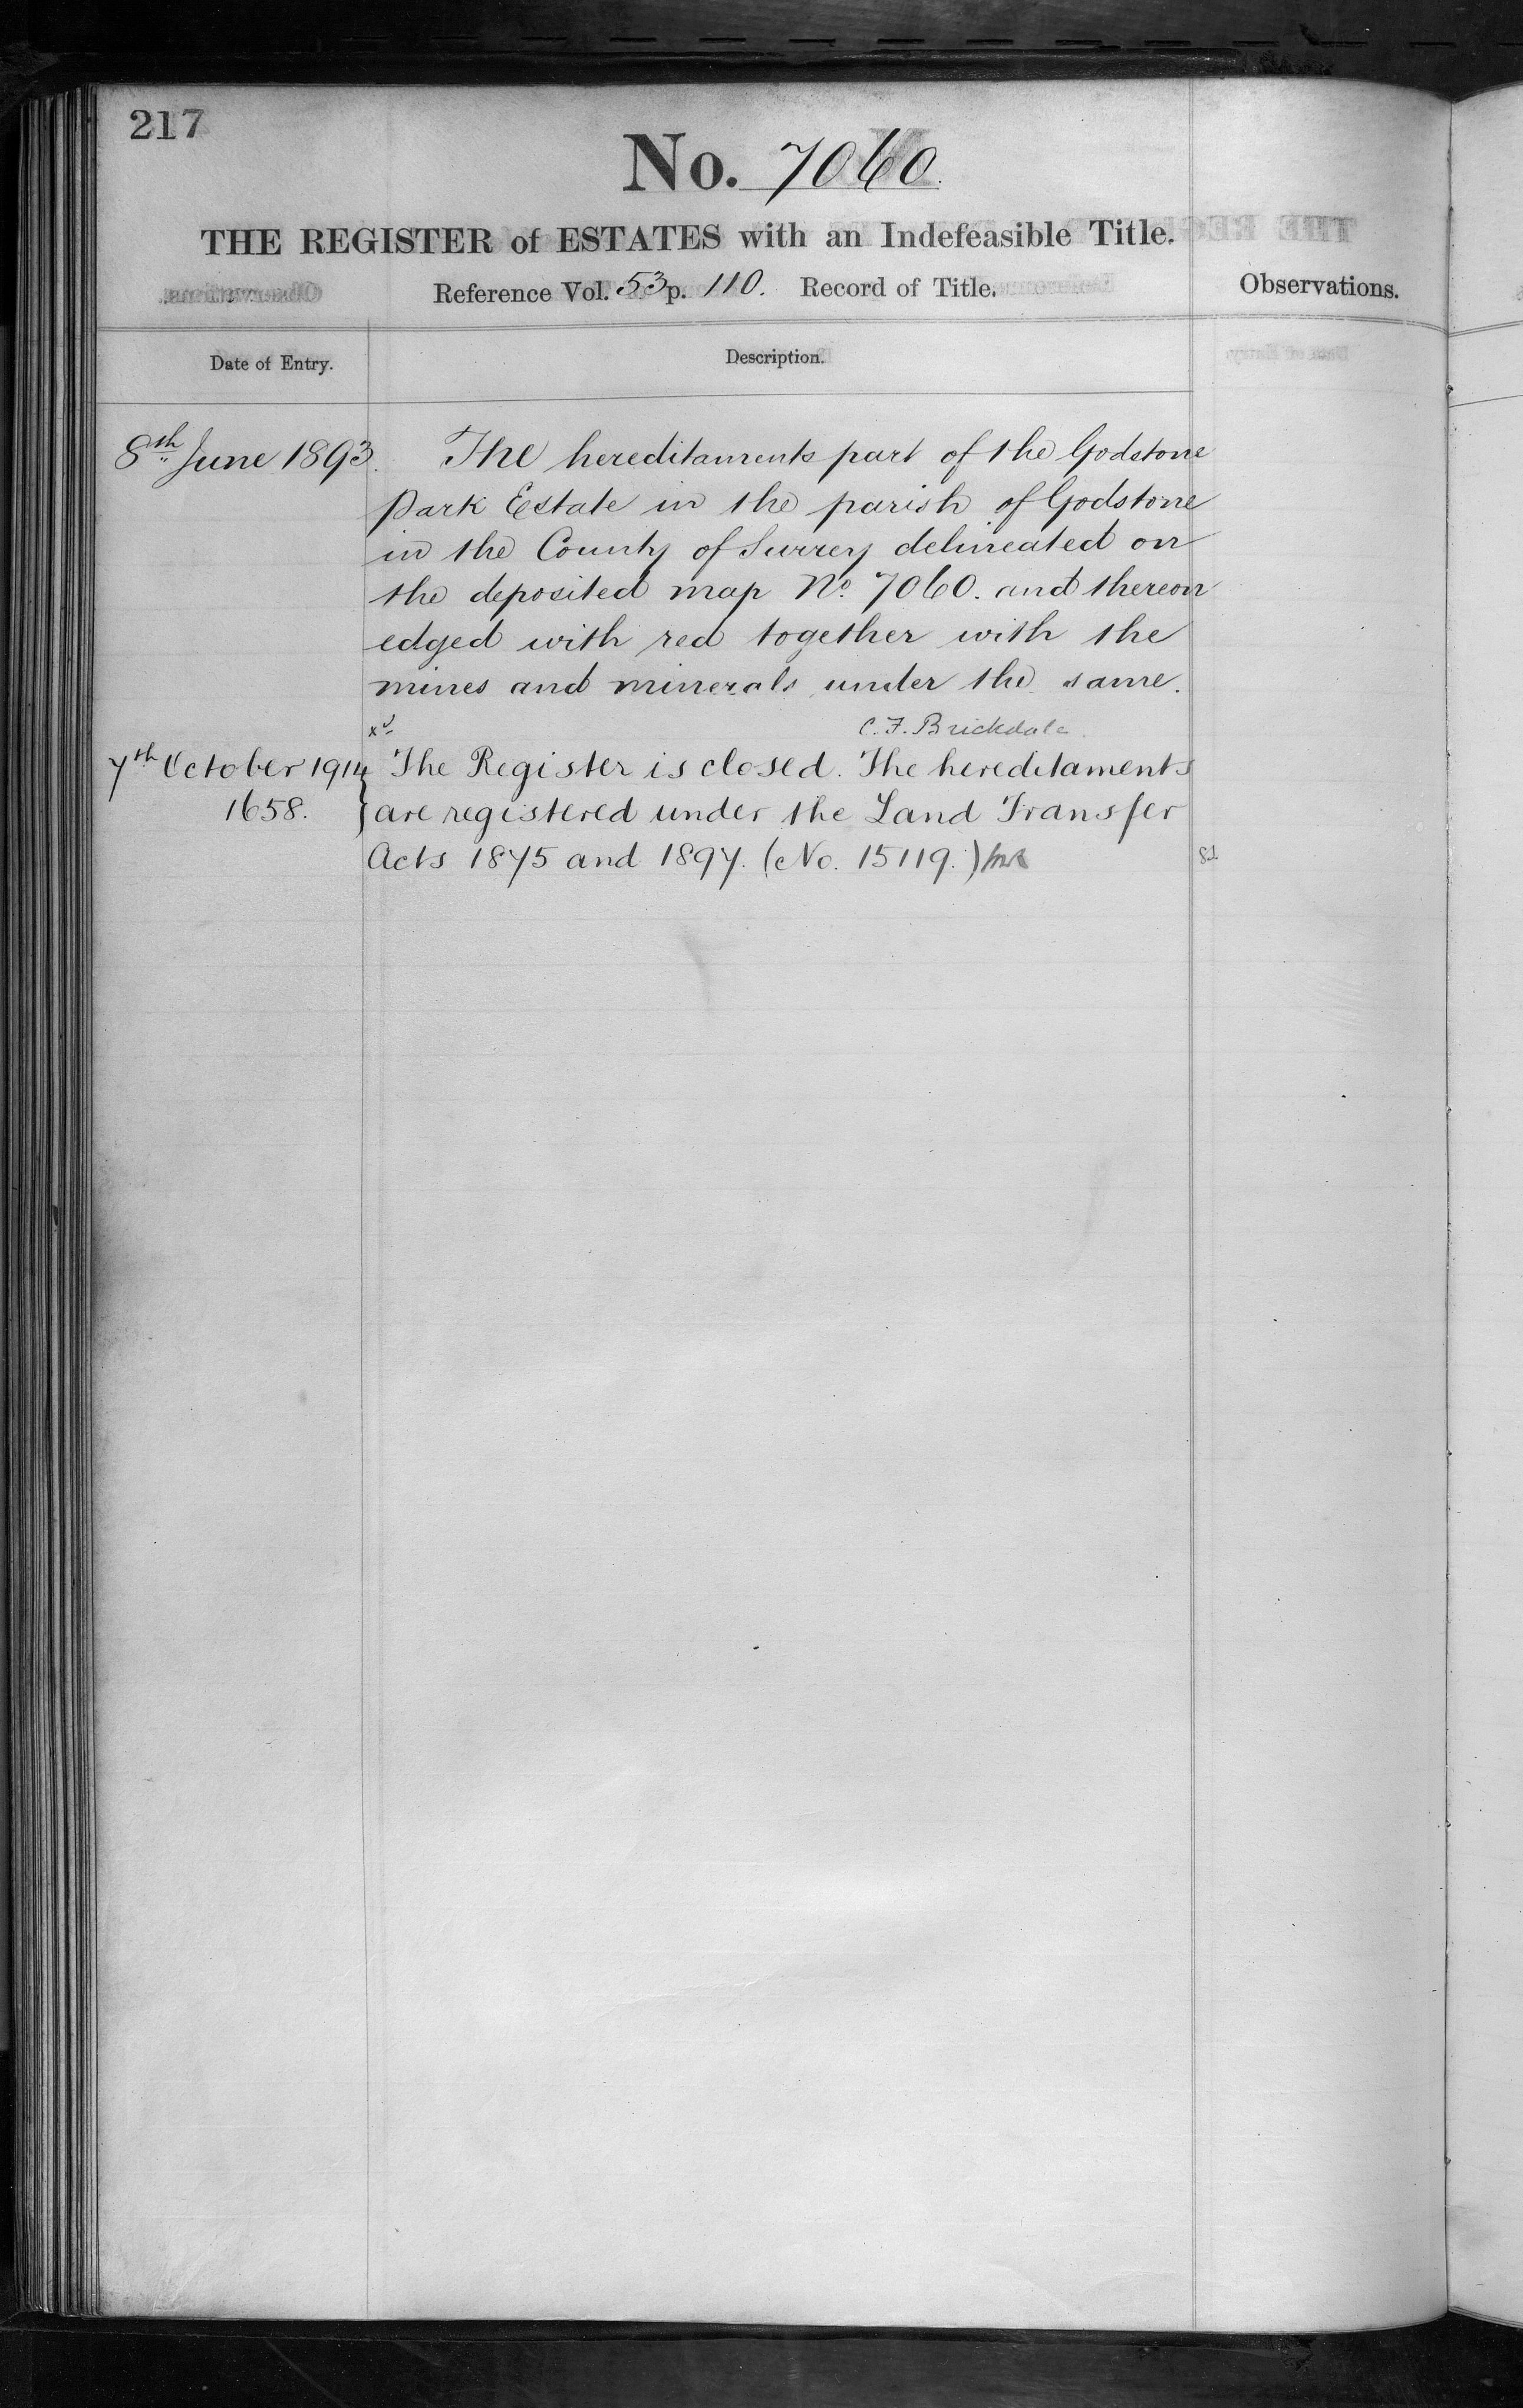 217
No. 7060.
THE REGISTER of ESTATES with an Indefeasible Title.
Reference Vol. 53 p. 110. Record of Title.
Observations.
Date of Entry.
Description.
8th June 1893. The hereditaments part of the Godstone
Park Estate in the parish of Godstone
in the County of Surrey delineated on
the deposited map No. 7060. and thereon
edged with red together with the
mines and minerals under the same.
C. F. Brickdale.
7th October 1914 } The Register is closed. The hereditaments
1658. } are registered under the Land Transfer
Acts 1875 and 1897. (No. 15119.)